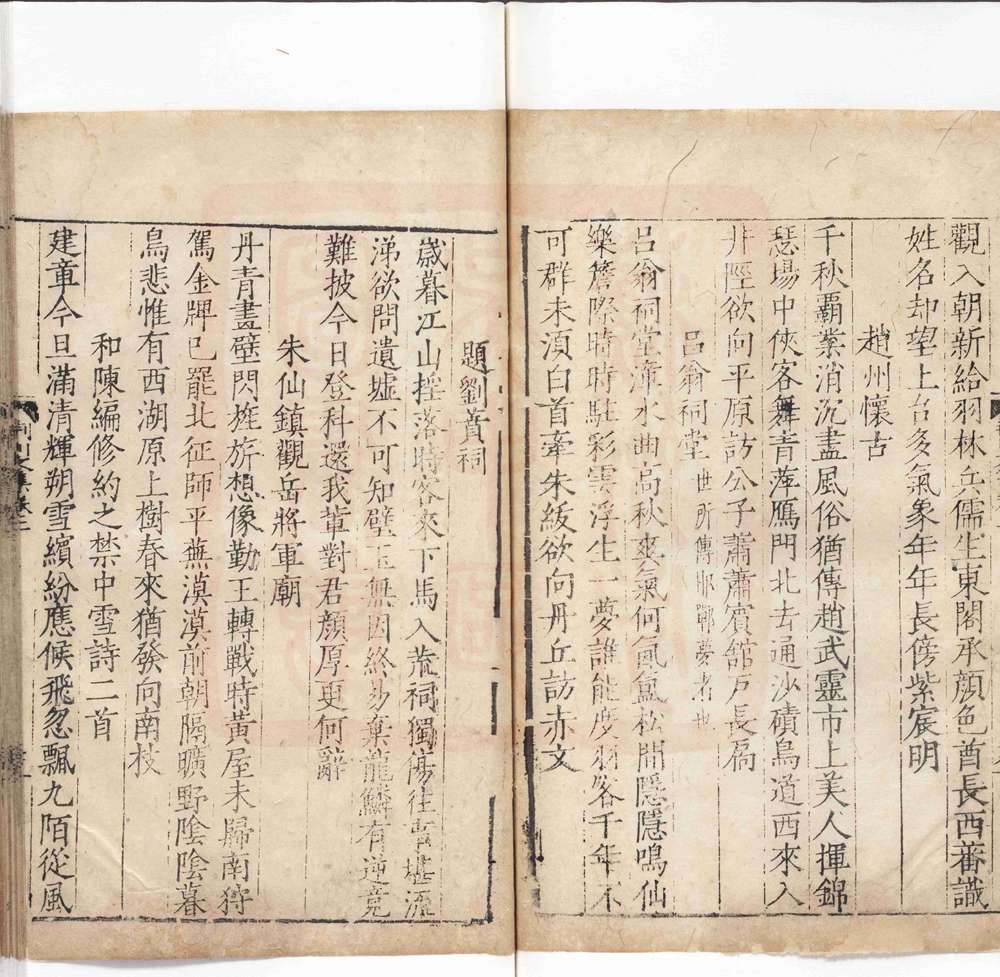 觀入朝新給羽林兵儒生東閣承顏色酋長西蕃識
姓名却望上台多氣象年年長傍紫宸明
趙州懷古
千秋霸業消沉盡風俗猶傳趙武靈市上美人揮錦
瑟場中俠客舞青萍鴈門北去通沙磧鳥道西來入
井陘欲向平原訪公子蕭蕭賓館戶長扃
呂翁祠堂世所傳邯鄲夢者也
呂翁祠堂漳水曲高秋爽氣何氤氳松間隱隱鳴仙
樂簷際時時駐彩雲浮生一夢誰能度羽客千年不
可群未須白首牽朱紱欲向丹丘訪赤文
題劉蕡祠
歲暮江山揺落時客來下馬入荒祠獨傷往事堪流
涕欲問遺墟不可知璧玉無因終弃龍鱗有逆竟
難披今日登科還我軰對君顏厚更何辭
朱仙鎮觀岳將軍廟
丹青畫壁閃旌旂想像勤王轉戰時黃屋未歸南狩
駕金牌已罷北征師平蕪漠漠前朝曠野陰陰暮
鳥悲惟有西湖原上樹春來猶發向南枝
和陳編修約之禁中雪詩二首
建章今旦滿清輝朔雪繽紛應候飛忽飄九陌從風